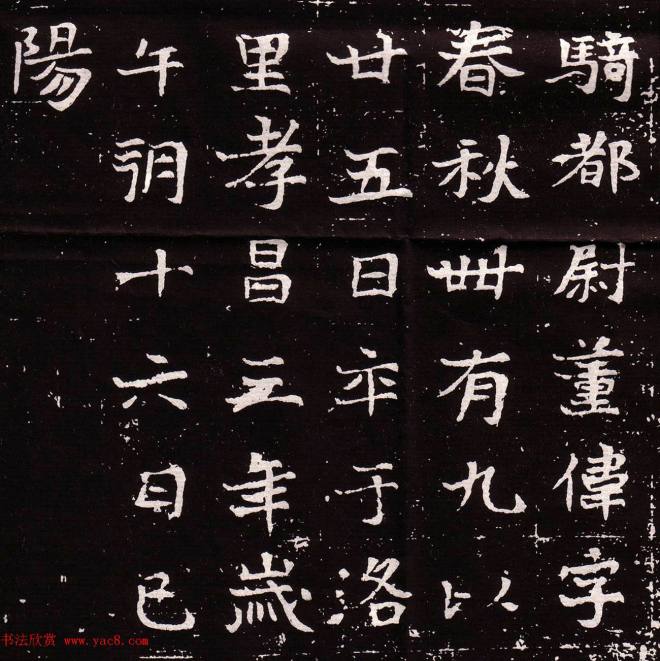 騎都尉董偉字
春秋卌有九以
廿五日卒于洛
里孝昌三年歲
午朔十六日己
陽
书法欣赏 www.yac8.com